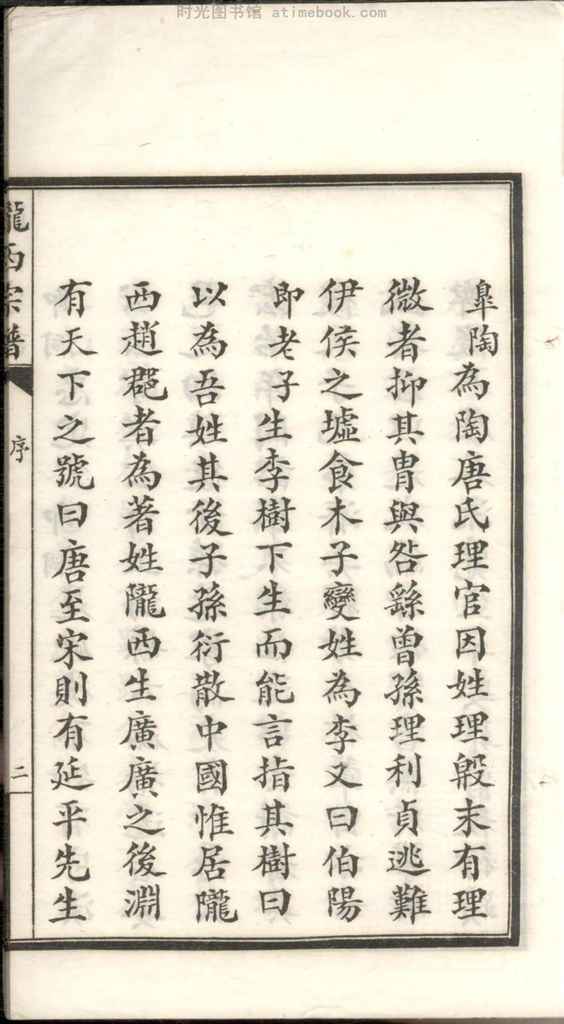 时光图书馆 atimebook.com
皐陶為陶唐氏理官因姓理殷末有理
微者抑其胄與咎繇曾孫理利貞逃難
伊侯之墟食木子變姓為李又曰伯陽
即老子生李樹下生而能言指其樹曰
以為吾姓其後子孫衍散中國惟居隴
西趙郡者為著姓隴西生廣廣之後淵
有天下之號曰唐至宋則有延平先生
隴西宗譜
序
二